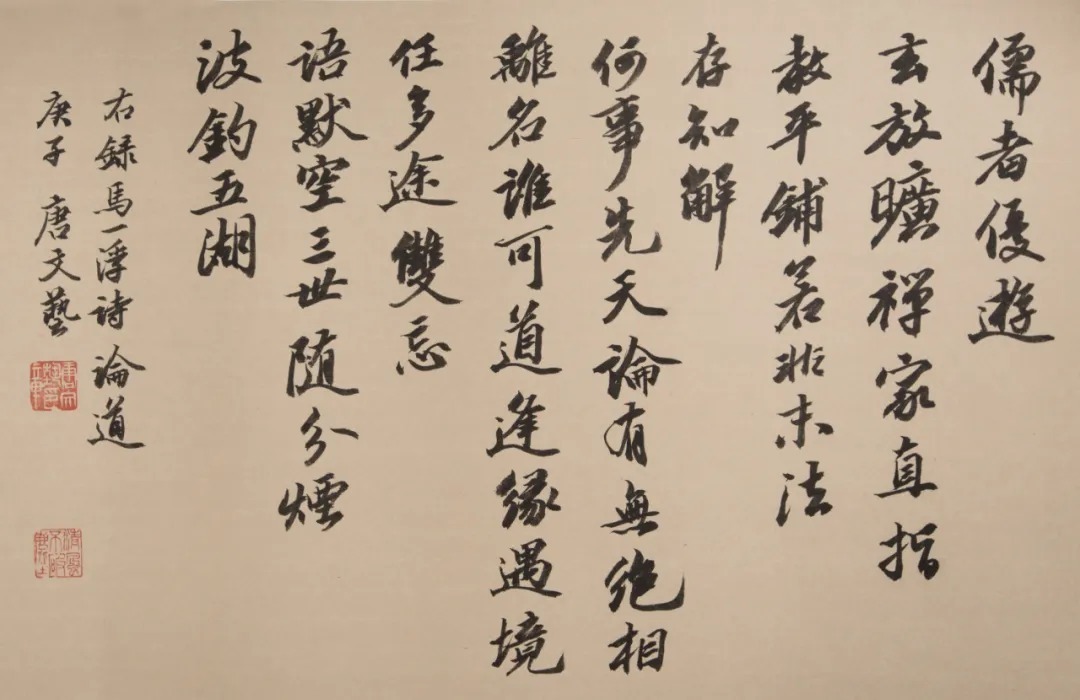 儒者優遊
玄放曠禅家直指
教平鋪若非末法
存知解
何事先天論有無絶相
離名誰可道逢緣遇境
任多途雙忘
语默空三世随分煙
波釣五湖
右録馬一浮詩論道
庚子唐文藝